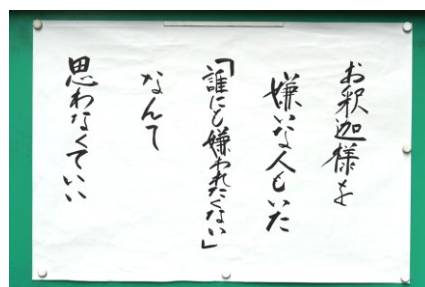 お釈迦様を
嫌いな人もいた
「誰にも嫌われたくない」
なんて
思わなくていい